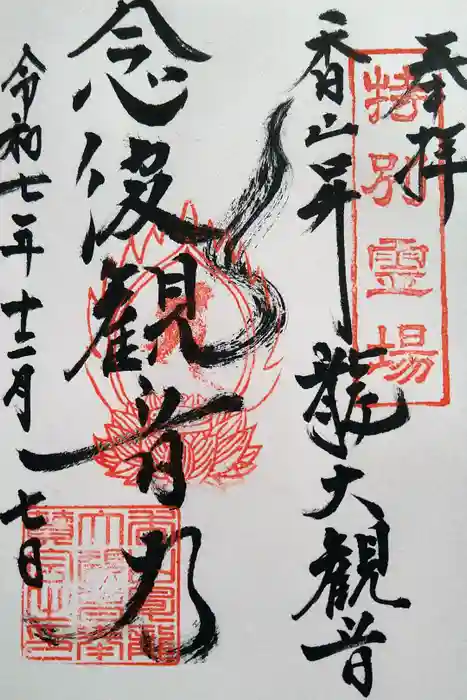 奉拝
特別霊場
香山昇龍大観音
念彼観音力
令和七年十二月七日